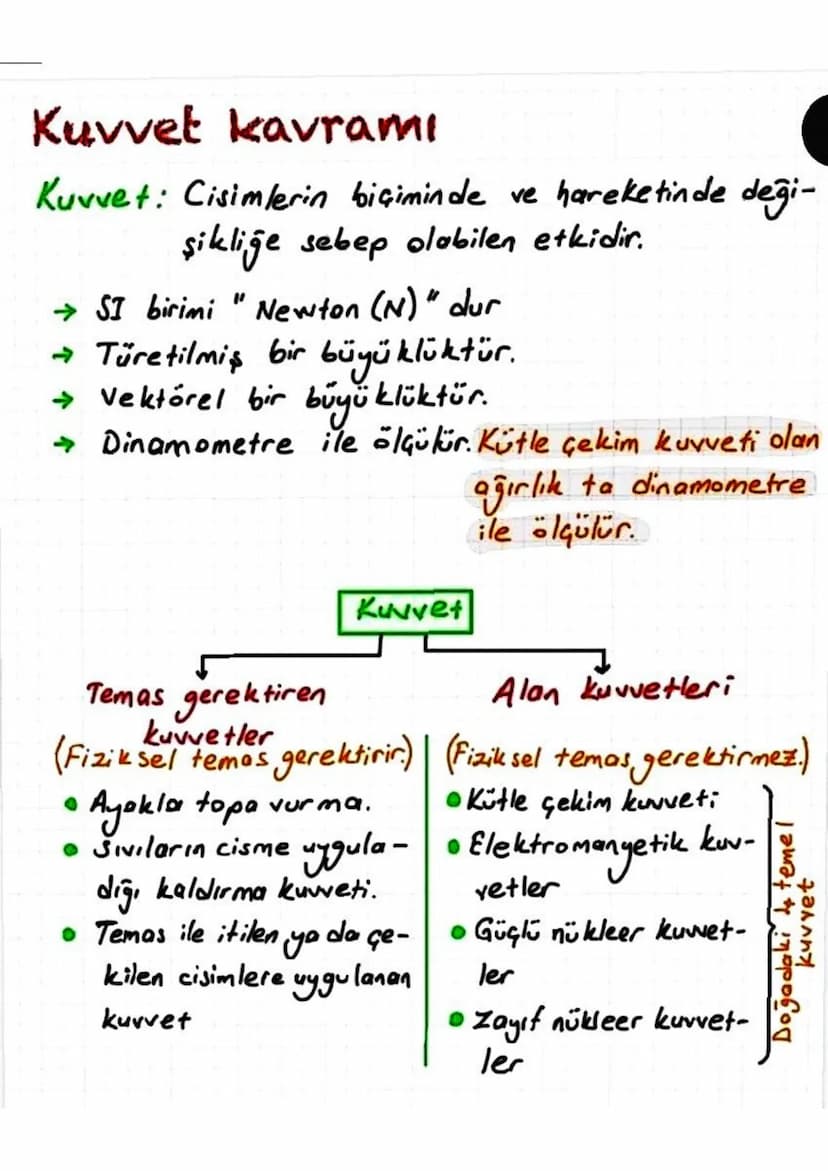 Kuvvet kavramı
Kuvvet: Cisimlerin biçiminde ve hareketinde deği-
şikliğe sebep olabilen etkidir.
→ SI birimi "Newton (N)" dur
→ Türetilmiş bir büyüklüktür.
→ Vektörel bir büyüklüktür.
→ Dinamometre ile ölçülür. Kütle çekim kuvveti olan
ağırlık ta dinamometre
ile ölçülür.
Kuvvet
Temas gerektiren
kuvvetler
(Fiziksel temas gerektirir.)
• Ayakla topa vurma.
• Sıvıların cisme uygula-
dığı kaldırma kuvveti.
• Temas ile itilen ya da çe-
kilen cisimlere uygulanan
kuvvet
Alan kuvvetleri
(Fiziksel temas gerektirmez.)
• Kütle çekim kuvveti
• Elektromanyetik kuv-
vetler
• Güçlü nükleer kuvvet-
ler
• Zayıf nükleer kuvvet-
ler
Doğadaki 4 temel
kuvvet